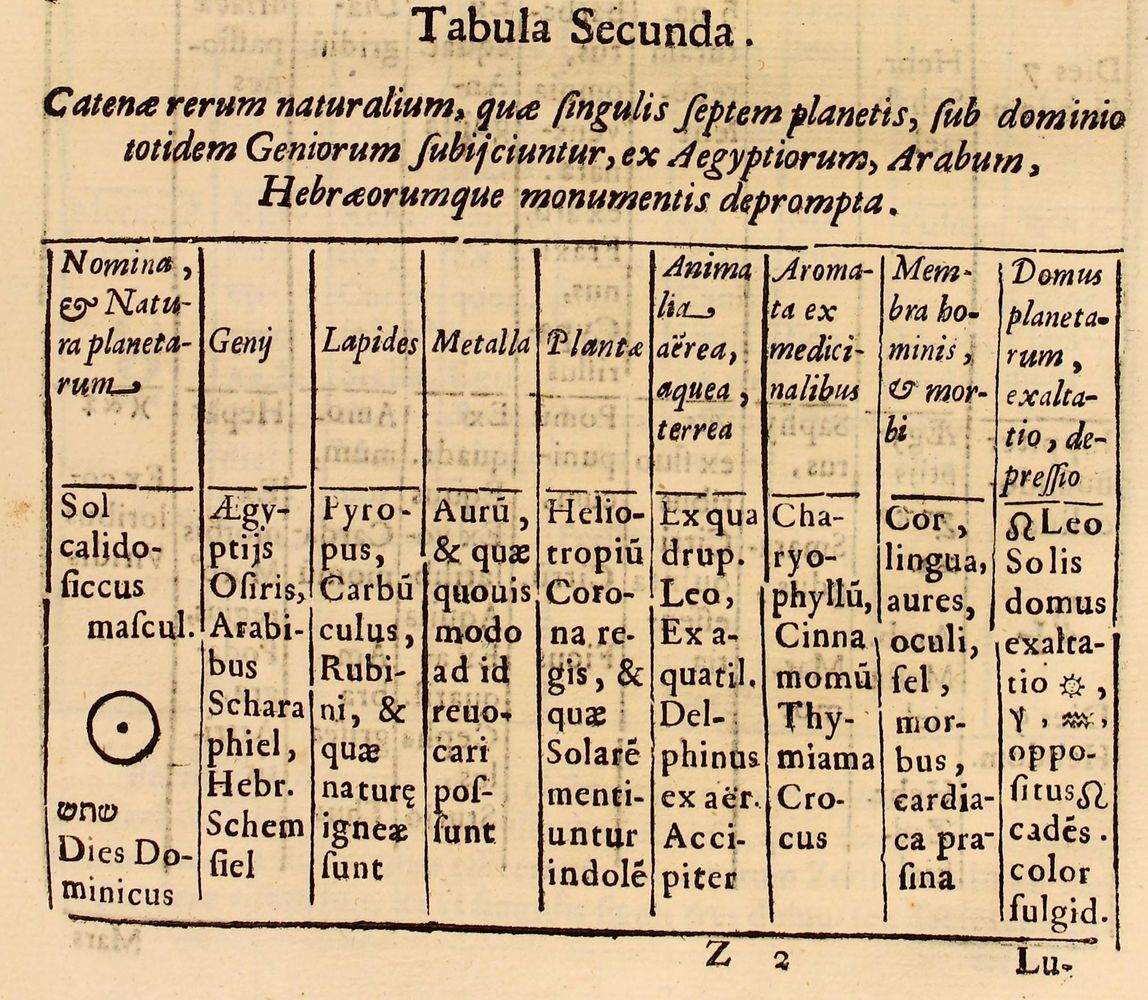 Tabula Secunda.
Catenæ rerum naturalium, quæ ſingulis ſeptem planetis, ſub dominio
totidem Geniorum ſubijciuntur, ex Aegyptiorum, Arabum,
Hebræorumque monumentis deprompta.
Nomina,
& Natu-
ra planeta-
rum
Genij
Lapides
Metalla
Plantæ
Anima
lia
aërea,
aquea,
terrea
Aroma-
ta ex
medici-
nalibus
Mem-
bra ho-
minis,
& mor-
bi
Domus
planeta-
rum,
exalta-
tio, de-
preſſio
Sol
calido-
ſiccus
maſcul.
☉
שחש
Dies Do-
minicus
Ægy-
ptijs
Oſiris,
Arabi-
bus
Schara
phiel,
Hebr.
Schem
ſiel
Pyro-
pus,
Carbū
culus,
Rubi-
ni, &
quæ
naturę
igneæ
ſunt
Aurū,
& quæ
quouis
modo
ad id
reuo-
cari
poſ-
ſunt
Helio-
tropiū
Coro-
na re-
gis, &
quæ
Solarē
menti-
untur
indolē
Ex qua
drup.
Leo,
Ex a-
quatil.
Del-
phinus
ex aër.
Acci-
piter
Cha-
ryo-
phyllū,
Cinna
momū
Thy-
miama
Cro-
cus
Cor,
lingua,
aures,
oculi,
fel,
mor-
bus,
cardia-
ca pra-
ſina
♌ Leo
Solis
domus
exalta-
tio ☼,
♈, ♒,
oppo-
ſitus ♌
cadēs.
color
fulgid.
Z 2
Lu-